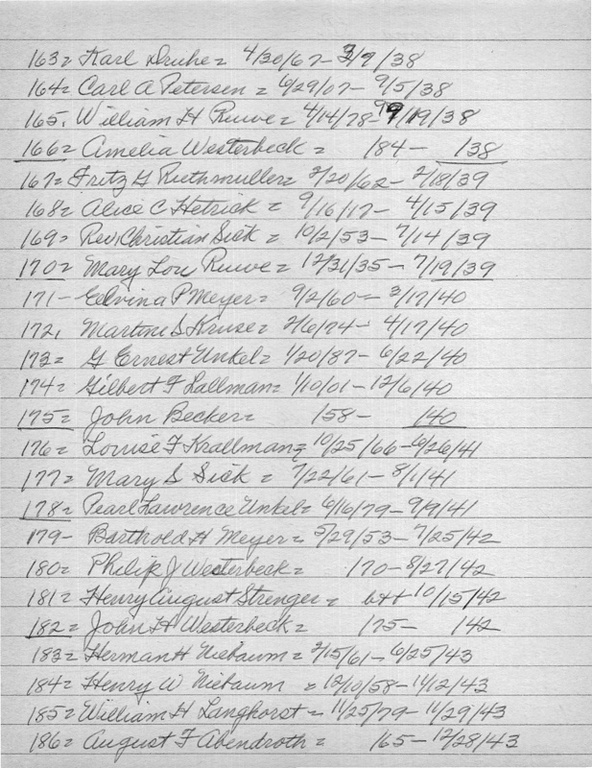 163= Karl Druhe= 4/30/67- 3/9/38
164= Carl A Petersen = 6/29/07- 9/5/38
165. William H Ruwe= 4/14/78- 9/19/38
166= Amelia Westerbeck = 184- 138
167= Fritz G Ruthmuller= 3/20/62- 2/18/39
168= Alice C Hetrick = 9/16/17- 4/15/39
169= Rev. Christian Sick = 10/2/53- 7/14/39
170= Mary Lou Ruwe = 12/31/35- 7/19/39
171- Elvina P Meyer= 9/2/60- 3/17/40
172, Martin S Kruse= 2/6/74- 4/17/40
173= G Ernest Unkel= 1/20/87- 6/22/40
174= Gilbert F Lallman= 1/10/01- 12/6/40
175= John Becker= 158- 140
176= Louise F Krallman= 10/25/66- 6/26/41
177= Mary S Sick = 7/22/61- 8/1/41
178= Pearl Lawrence Unkel= 6/16/79- 9/9/41
179- Barthold H Meyer= 5/29/53- 7/25/42
180= Philip J Westerbeck= 170- 8/27/42
181= Henry August Strenger= 10/15/42
182= John H Westerbeck= 175- 142
183= Herman H Niebaum= 2/15/61- 6/25/43
184= Henry W Niebaum = 12/10/58- 11/12/43
185= William H Langhorst= 11/25/79- 11/29/43
186= August F Abendroth= 165- 12/28/43